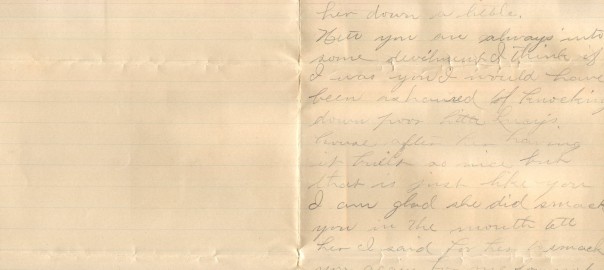 her down a little.
you are always into
some devilment I think if
I was you I would have
been ashamed of knocking
down poor little
house after her having
it built so nice but
that is just like you
I am glad she did smack
you in the mouth tell
her I said for her to smack
you again